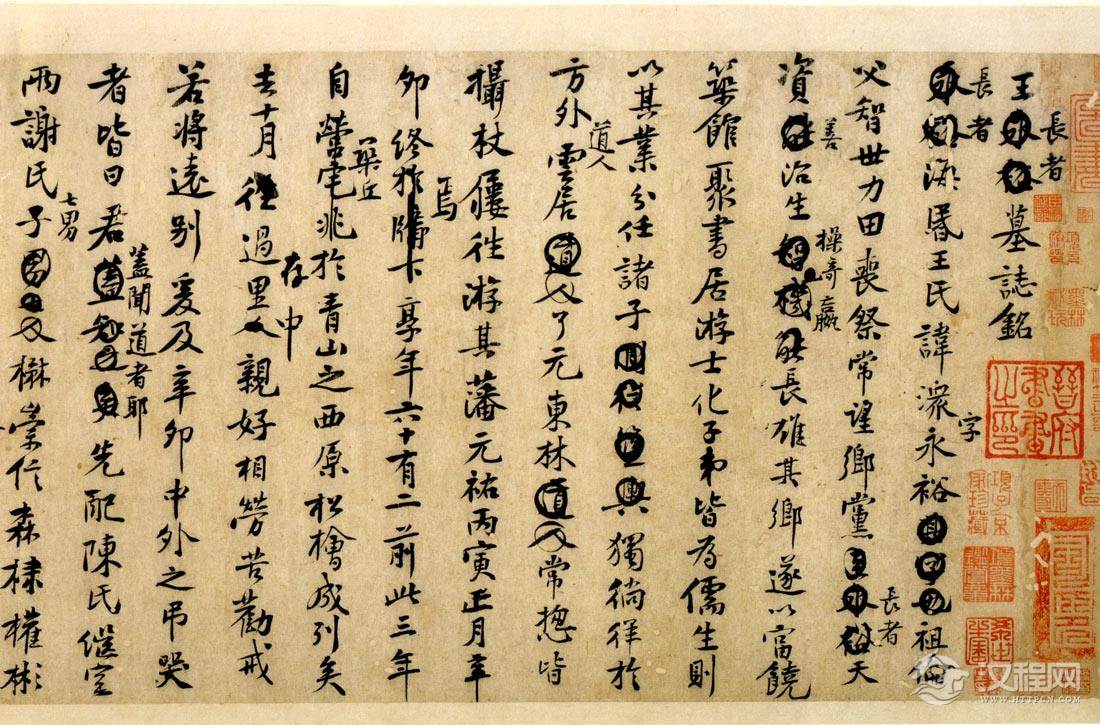 王長者墓誌銘
長者王氏諱潀字永裕祖
父智世力田喪祭常望鄉黨長者天
資善治生操奇贏長雄其鄉遂以富饒
築館聚書居游士化子弟皆為儒生則
以其業分任諸子獨徜徉於
方外雲居道人了元東林常揔皆
攝杖屨往游其藩焉元祐丙寅正月辛
卯終於牖下享年六十有二前此三年
自營宅兆築丘於青山之西原松檜成列矣
去十月徃過里中存親好相勞苦勸戒
若將遠别爰及辛卯中外之弔哭
者皆曰君蓋聞道者耶先配陳氏繼室
兩謝氏子七男楙崇森棣權彬
晉府書畫之印
汉程网
WWW.HTTPCN.COM